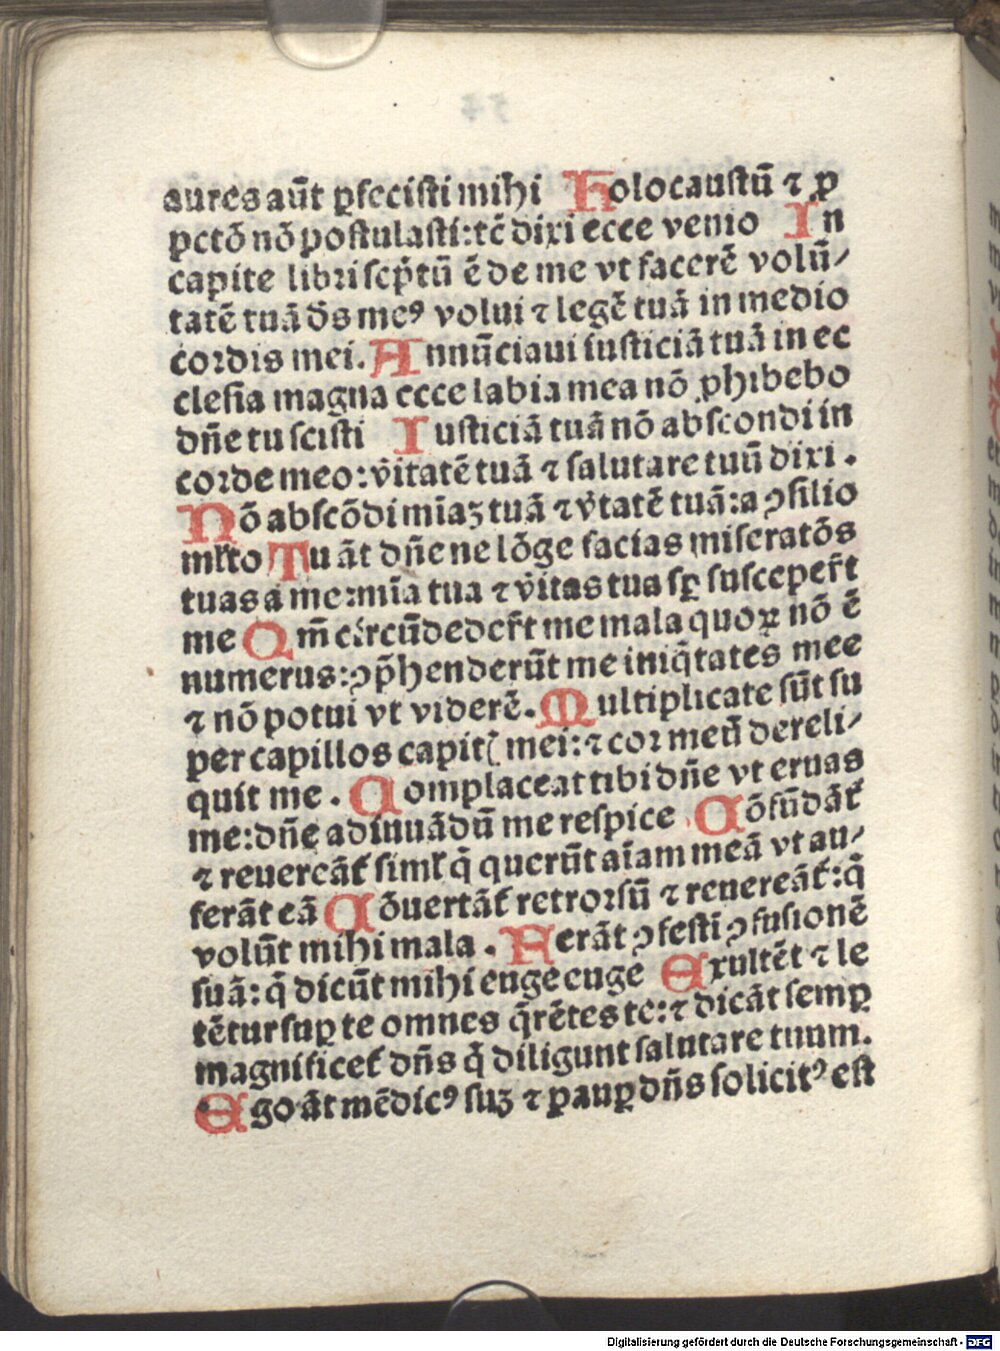 aures aūt ꝑfecisti mihi Holocaustū ⁊ ꝓ
pctō nō postulasti: tc̄ dixi ecce venio In
capite libri scp̄tū ē de me vt facerē volū/
tatē tuā ds̄ meꝰ volui ⁊ legē tuā in medio
cordis mei. Annūciaui iusticiā tuā in ec
clesia magna ecce labia mea nō ꝓhibebo
dn̄e tu scisti Iusticiā tuā nō abscondi in
corde meo: v̄itatē tuā ⁊ salutare tuū dixi.
Nō abscōdi mīaꝫ tuā ⁊ v̄tatē tuā: a ꝯsilio
ml̄to Tu āt dn̄e ne lōge facias miseratōs
tuas a me: mīa tua ⁊ v̄itas tua sꝑ susceper̄t
me Qm̄ circūdeder̄t me mala quoꝝ nō ē
numerus: ꝯp̄henderūt me iniq̄tates mee
⁊ nō potui vt viderē. Multiplicate sūt su
per capillos capitꝭ mei: ⁊ cor meū dereli/
quit me. Complaceat tibi dn̄e vt eruas
me: dn̄e ad iuuādū me respice Cōfūdāt̄
⁊ reuereāt̄ siml̄ q̄ querūt aīam meā vt au/
ferāt eā Cōuertāt̄ retrorsū ⁊ reuereāt̄: q̄
volūt mihi mala. Ferāt ꝯfestī ꝯfusionē
suā: q̄ dicūt mihi euge euge Exultēt ⁊ le
tētur suꝑ te omnes q̄rētes te: ⁊ dicāt semꝑ
magnificet̄ dn̄s q̄ diligunt salutare tuum.
Ego āt mēdicꝰ suꝫ ⁊ pauꝑ dn̄s solicitꝰ est
Digitalisierung gefördert durch die Deutsche Forschungsgemeinschaft - DFG